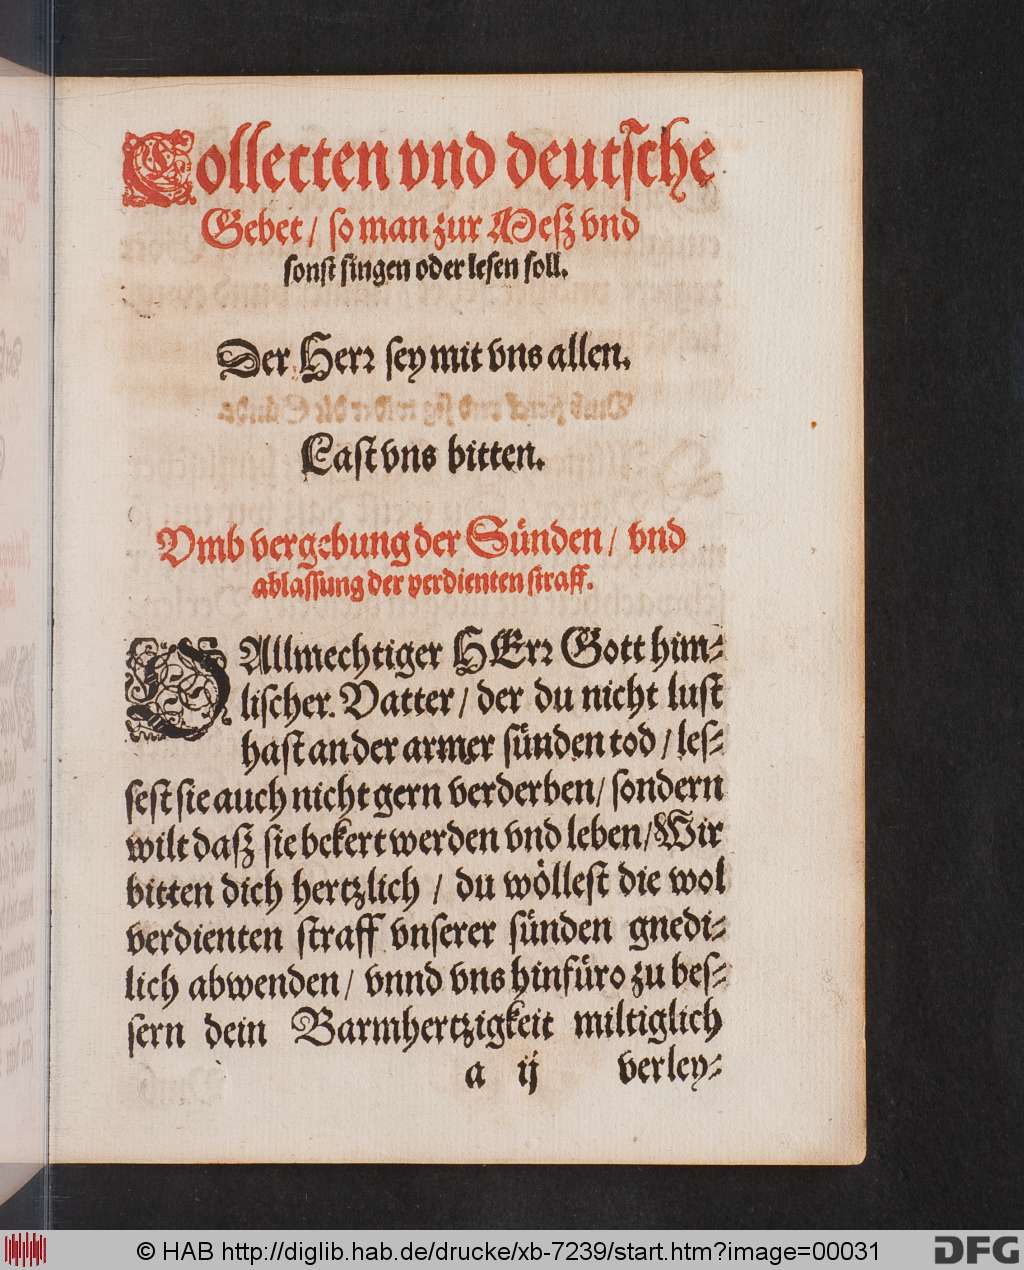 Collecten vnd deutsche
Gebet / so man zur Meß vnd
sonst singen oder lesen soll.
Der Herr sey mit vns allen.
Last vns bitten.
Vmb vergebung der Sünden / vnd
ablassung der verdienten straff.
O Allmechtiger HErr Gott him-
lischer Vatter / der du nicht lust
hast an der armer sünden tod / les-
sest sie auch nicht gern verderben / sondern
wilt daß sie bekert werden vnd leben / Wir
bitten dich hertzlich / du wöllest die wol
verdienten straff vnserer sünden gnedi-
lich abwenden / vnnd vns hinfüro zu bes-
sern dein Barmhertzigkeit miltiglich
a ij verley-
© HAB http://diglib.hab.de/drucke/xb-7239/start.htm?image=00031
DFG